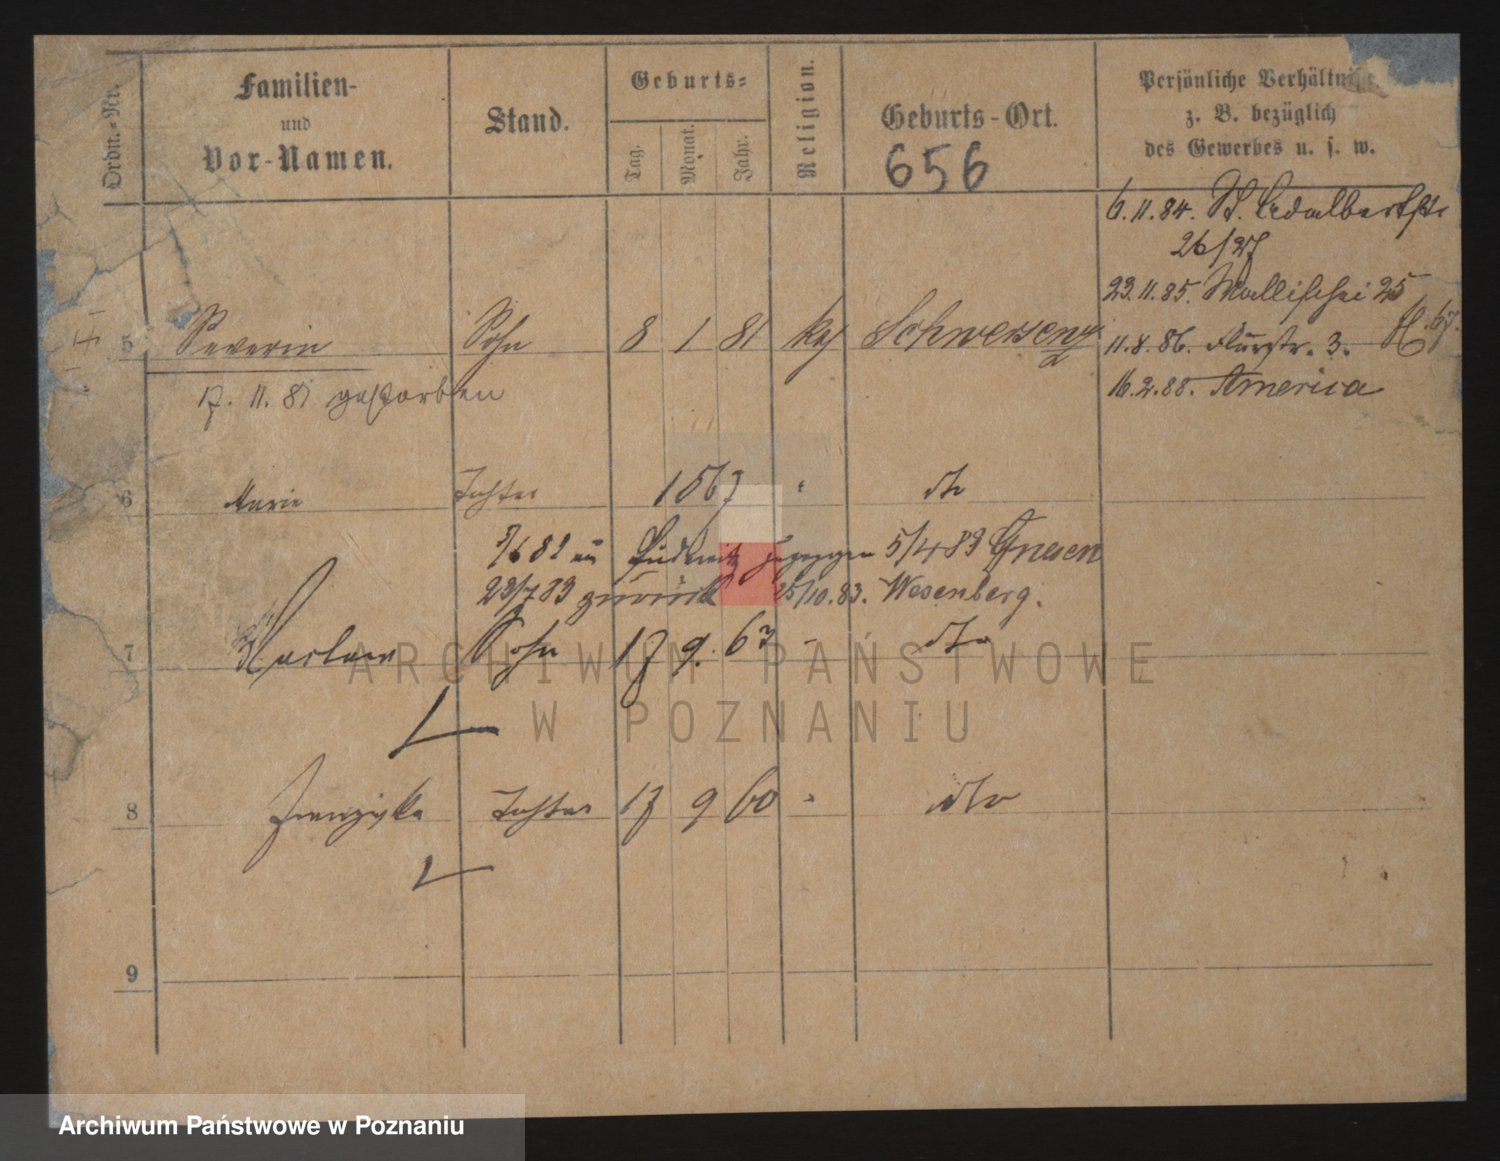 Ordn.-Nr.
Familien-
und
Vor-Namen.
Stand.
Geburts-
Tag.
Monat.
Jahr.
Religion.
Geburts-Ort.
656
Persönliche Verhältnisse
z. B. bezüglich
des Gewerbes u. s. w.
6.11.84. St. Adalbertstr
26/27
23.11.85. Wallischei 25
5 Severin Sohn 8 1 81 kath Schwersenz
11.8.86. Flurstr. 3.
17. 11. 81 gestorben
16.2.88. America
6 Marie Tochter 1867 " dto
7/6 82 gezogen 5/4 83 Gnesen
23/7 83 zurück 25/10.83. Wesenberg.
7 Sohn 17 9. 67 - dto
8 Franziska Tochter 17 9 60 " dto
9
ARCHIWUM PAŃSTWOWE
W POZNANIU
Archiwum Państwowe w Poznaniu